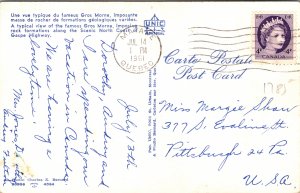 Une vue typique du fameux Gros Morne, imposante
masse de rocher de formations géologiques variées.
A typical view of the famous Gros Morne, imposing
rock formations along the Scenic North Coast of
Gaspe Highway.
UNIC
JUL 14
1 PM
1961
QUEBEC
CANADA
4¢
Carte Postale
Post Card
July 13th
Dorothy, Audrey and
I are spending our
vacation in Canada
We are having a
lovely time.
Miss Margie Shaw
377 S. Evaline St.
Pittsburgh 24 Pa.
U.S.A.